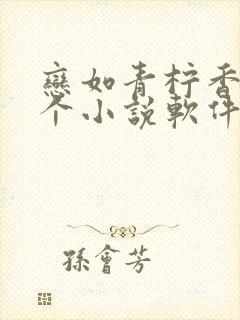 戀如青柠香
个小說軟件
孫會芳